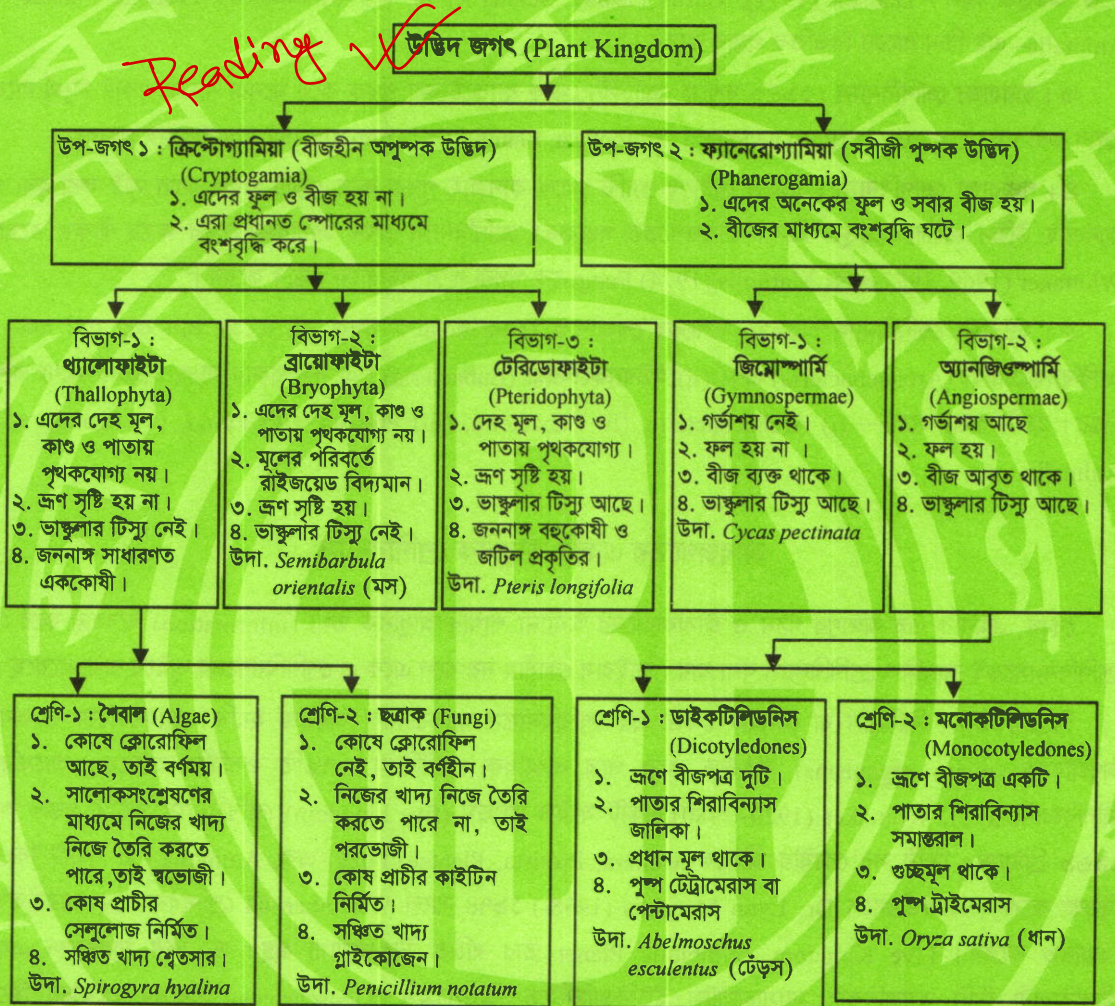 Reading
উদ্ভিদ জগৎ (Plant Kingdom)
উপ-জগৎ ১ : ক্রিপ্টোগ্যামিয়া (বীজহীন অপুষ্পক উদ্ভিদ)
(Cryptogamia)
১. এদের ফুল ও বীজ হয় না।
২. এরা প্রধানত স্পোরের মাধ্যমে
বংশবৃদ্ধি করে।
উপ-জগৎ ২ : ফ্যানেরোগ্যামিয়া (সবীজী পুষ্পক উদ্ভিদ)
(Phanerogamia)
১. এদের অনেকের ফুল ও সবার বীজ হয়।
২. বীজের মাধ্যমে বংশবৃদ্ধি ঘটে।
বিভাগ-১ :
থ্যালোফাইটা
(Thallophyta)
১. এদের দেহ মূল,
কাণ্ড ও পাতায়
পৃথকযোগ্য নয়।
২. ভ্রূণ সৃষ্টি হয় না।
৩. ভাস্কুলার টিস্যু নেই।
৪. জননাঙ্গ সাধারণত
এককোষী।
বিভাগ-২ :
ব্রায়োফাইটা
(Bryophyta)
১. এদের দেহ মূল, কাণ্ড ও
পাতায় পৃথকযোগ্য নয়।
২. মূলের পরিবর্তে
রাইজয়েড বিদ্যমান।
৩. ভ্রূণ সৃষ্টি হয়।
৪. ভাস্কুলার টিস্যু নেই।
উদা. Semibarbula
orientalis (মস)
বিভাগ-৩ :
টেরিডোফাইটা
(Pteridophyta)
১. দেহ মূল, কাণ্ড ও
পাতায় পৃথকযোগ্য।
২. ভ্রূণ সৃষ্টি হয়।
৩. ভাস্কুলার টিস্যু আছে।
৪. জননাঙ্গ বহুকোষী ও
জটিল প্রকৃতির।
উদা. Pteris longifolia
বিভাগ-১ :
জিম্নোস্পার্মি
(Gymnospermae)
১. গর্ভাশয় নেই।
২. ফল হয় না ।
৩. বীজ ব্যক্ত থাকে।
৪. ভাস্কুলার টিস্যু আছে।
উদা. Cycas pectinata
বিভাগ-২ :
অ্যানজিওস্পার্মি
(Angiospermae)
১. গর্ভাশয় আছে
২. ফল হয়।
৩. বীজ আবৃত থাকে।
৪. ভাস্কুলার টিস্যু আছে।
শ্রেণি-১ : শৈবাল (Algae)
১. কোষে ক্লোরোফিল
আছে, তাই বর্ণময়।
২. সালোকসংশ্লেষণের
মাধ্যমে নিজের খাদ্য
নিজে তৈরি করতে
পারে ,তাই স্বভোজী।
৩. কোষ প্রাচীর
সেলুলোজ নির্মিত।
৪. সঞ্চিত খাদ্য শ্বেতসার।
উদা. Spirogyra hyalina
শ্রেণি-২ : ছত্রাক (Fungi)
১. কোষে ক্লোরোফিল
নেই, তাই বর্ণহীন।
২. নিজের খাদ্য নিজে তৈরি
করতে পারে না, তাই
পরভোজী।
৩. কোষ প্রাচীর কাইটিন
নির্মিত।
৪. সঞ্চিত খাদ্য
গ্লাইকোজেন।
উদা. Penicillium notatum
শ্রেণি-১ : ডাইকটিলিডনিস
(Dicotyledones)
১. ভ্রূণে বীজপত্র দুটি।
২. পাতার শিরাবিন্যাস
জালিকা।
৩. প্রধান মূল থাকে।
৪. পুষ্প টেট্রামেরাস বা
পেন্টামেরাস
উদা. Abelmoschus
esculentus (ঢেঁড়স)
শ্রেণি-২ : মনোকটিলিডনিস
(Monocotyledones)
১. ভ্রূণে বীজপত্র একটি।
২. পাতার শিরাবিন্যাস
সমান্তরাল।
৩. গুচ্ছমূল থাকে।
৪. পুষ্প ট্রাইমেরাস
উদা. Oryza sativa (ধান)